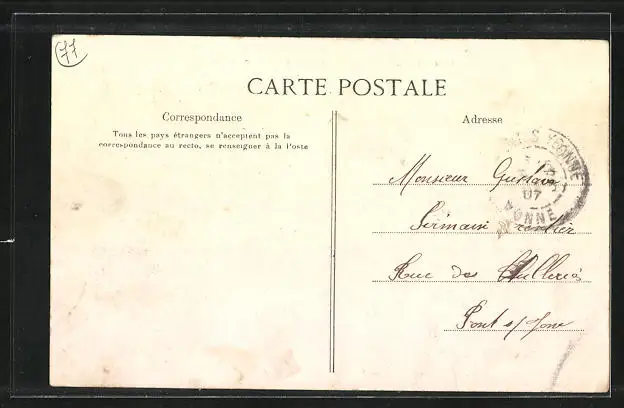 77
CARTE POSTALE
Correspondance
Tous les pays étrangers n'acceptent pas la
correspondance au recto, se renseigner à la Poste
Adresse
Monsieur Gustave
Germain
Rue des
Pont s/ Yonne
S YONNE
07
YONNE